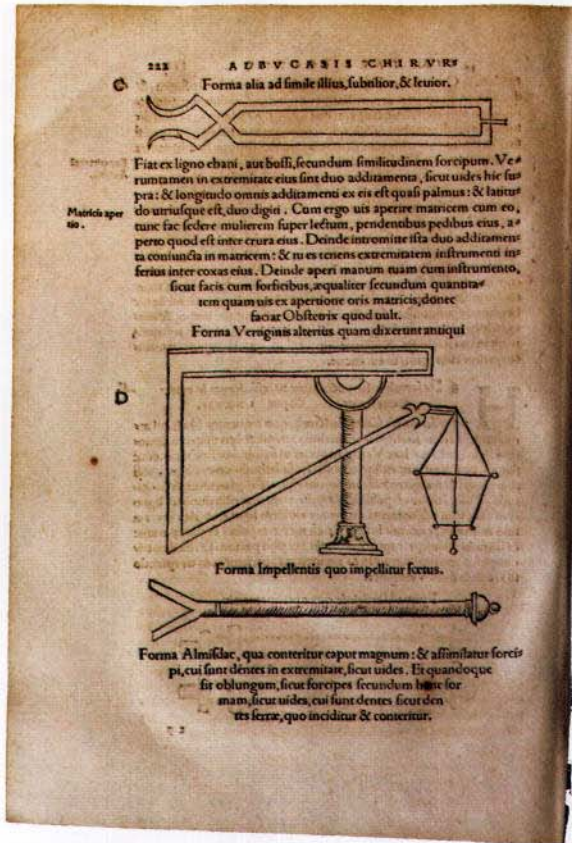 222 ADBVCASIS CHIRVR
C
Forma alia ad simile illius, subtilior, & leuior.
Fiat ex ligno ebani, aut bossi, secundum similitudinem forcipum. Ve-
rumtamen in extremitate eius sint duo additamenta, sicut uides hic su-
pra: & longitudo omnis additamenti ex eis est quasi palmus: & latitu-
Matricis aper
tio.
do utriusque est, duo digiti. Cum ergo uis aperire matricem cum eo,
tunc fac sedere mulierem super lectum, pendentibus pedibus eius, a-
perto quod est inter crura eius. Deinde intromitte ista duo additamen-
ta coniuncta in matricem: & tu es tenens extremitatem instrumenti in-
ferius inter coxas eius. Deinde aperi manum tuam cum instrumento,
sicut facis cum forficibus, æqualiter secundum quantita-
tem quam uis ex apertione oris matricis, donec
faciat Obstetrix quod uult.
Forma Vertiginis alterius quam dixerunt antiqui
D
Forma Impellentis quo impellitur fœtus.
Forma Almisdac, qua conteritur caput magnum: & assimilatur forci-
pi, cui sunt dentes in extremitate, sicut uides. Et quandoque
fit oblongum, sicut forcipes secundum hanc for
mam, sicut uides, cui sunt dentes sicut den
tes serræ, quo inciditur & conteritur.